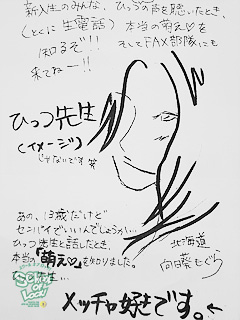 新入生のみんな、ひっつの声を聴いたとき、
(とくに生電話) 本当の萌え♡を
知るぞ!! そしてFAX部隊にも
来てねー!!
ひっつ先生
(イメージ)
じゃないです 笑
あの、13歳だけど
センパイでいいんでしょうか…
ひっつ先生と話したとき、
本当の「萌え♡」を知りました。
先生…
北海道
向日葵もぐら
メッチャ好きです。←
SCHOOL
OF LOCK!